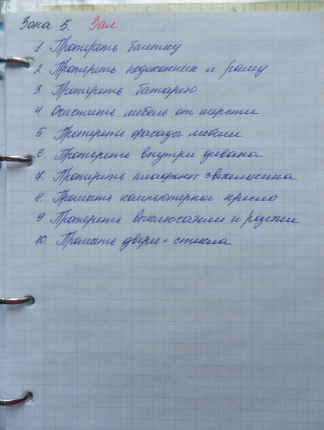 Зона 5. Зал
1 Протереть плитку
2 Протереть подоконник и раму
3 Протереть батарею
4. Очистить мебель от шерсти
5 Протереть фасады мебели
6. Протереть внутри дивана
7. Протереть плафоны светильника
8. Промыть компьютерное кресло
9 Протереть выключатели и розетки
10. Промыть двери + стекла